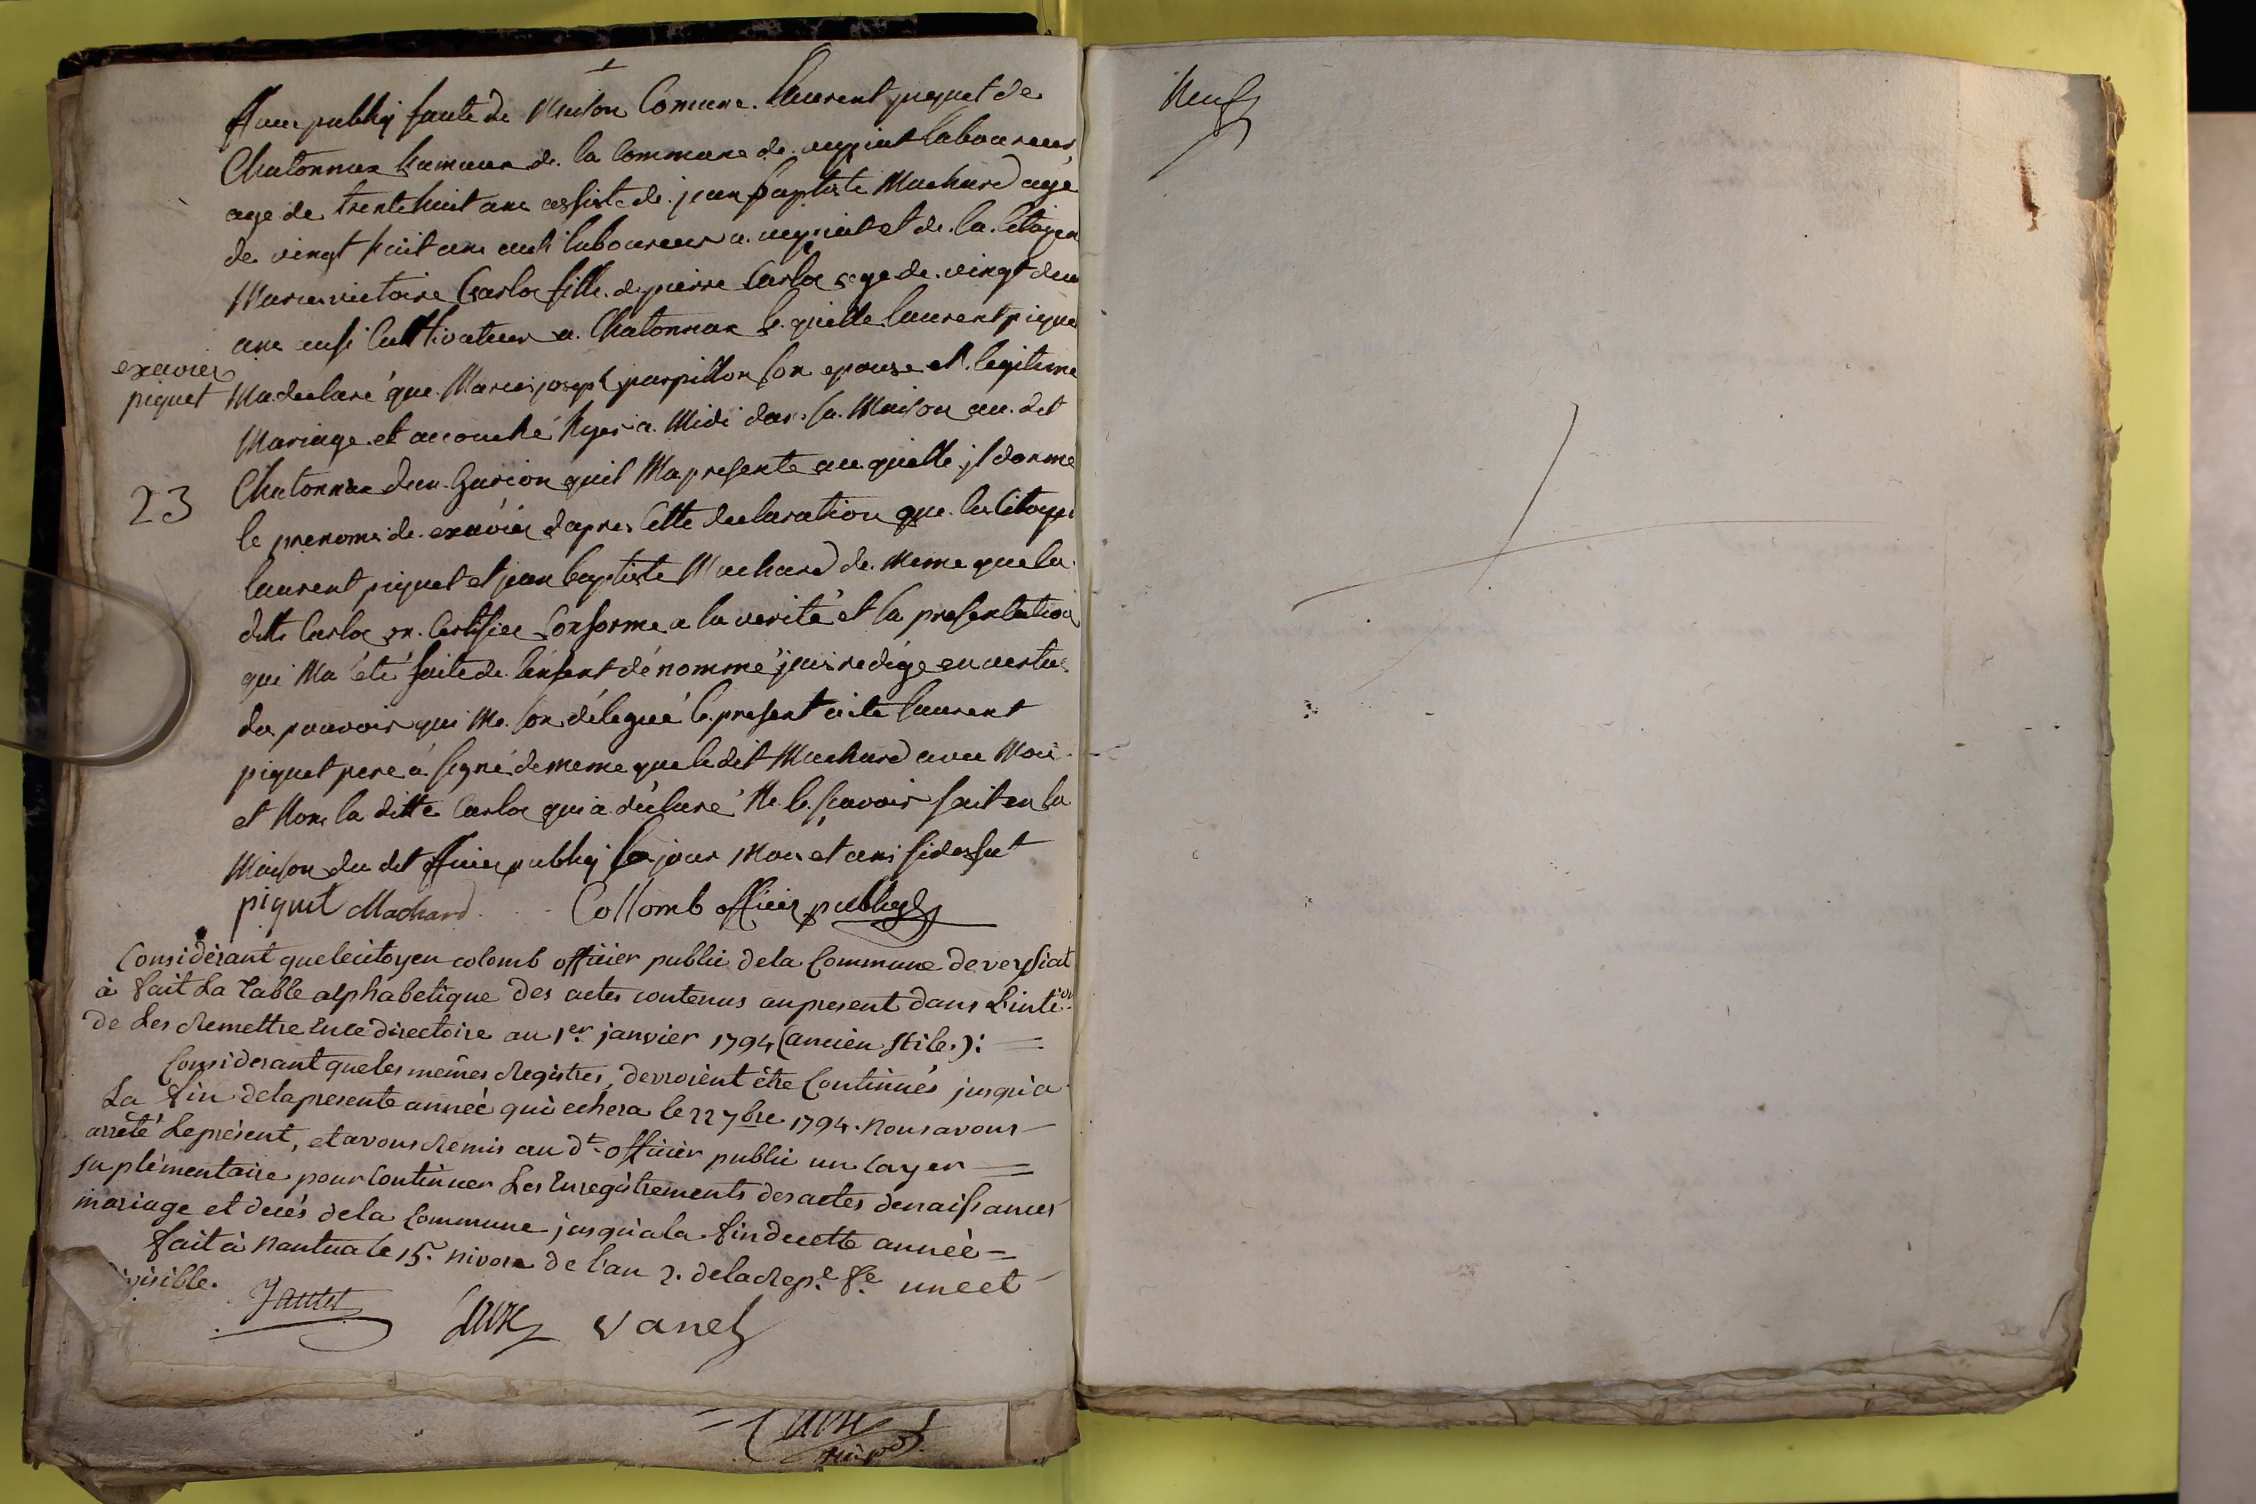 publiq faute de Maison Comune. laurent piquet de
Chatonnax hameaux de la Commune de veyziat laboureur
age de trente huit ans assisté de jean baptiste Machard agé
de vingt huit ans ausi laboureur a veyziat et de la Citoyen
Marie victoire Carloz fille de pierre Carloz age de vingt deux
ans ausi Cultivateur a Chatonnax le quelle laurent pique
exavier
piquet
Ma declaré que Marie joseph parpillon son epouse et legitime
Mariage et accouché hyer a Midi dans sa Maison au dit
23
Chatonnax d'un garcon quil Ma presente au quelle jl donne
le prenoms de exavier dapres Cette declaration que les Citoyen
laurent piquet et jean baptiste Machard de Meme que la
ditte Carloz on Certifiee Conforme a la verité et la presentation
qui Ma été faite de lenfent dénommé jais redigé en vertu
du pouvoir qui Me son délegué le present acte laurent
piquet pere à signé de meme que le dit Machard avec Moi
et Non la ditte Carloz qui a déclaré Ne le scavoir fait en la
Maison du dit officier publiq les jour Mois et ans
piquet Machard Collomb officier publiq
Considerant que le citoyen colomb officier public de la Commune de veysiat
à fait La table alphabetique des actes contenus au present dans L'inte.on
de Les Remettre En ce directoire au 1er. janvier 1794 (ancien Stile.):
Considerant que les mêmes Registres, devroient être Continués jusqu'a
La fin de la presente année qui echera le 22 7bre. 1794. nous avons
arrêté Le présent, et avons Remis au dt. officier public un Cayer
suplémentaire pour Continuer Les Enregitrements des actes de naissances
mariage et decés de la Commune jusqu'a la fin de cette année
fait à Nantua le 15. Nivose de l'an 2. de la Rep.e f.e une et
Vanel